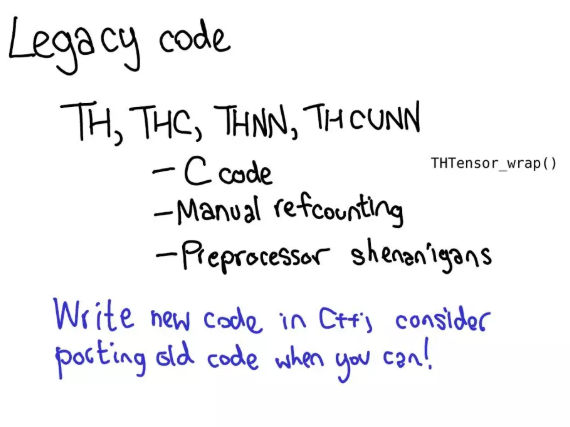 Legacy code
TH, THC, THNN, THCUNN
- C code
THTensor_wrap()
- Manual refcounting
- Preprocessor shenanigans
Write new code in C++; consider
porting old code when you can!